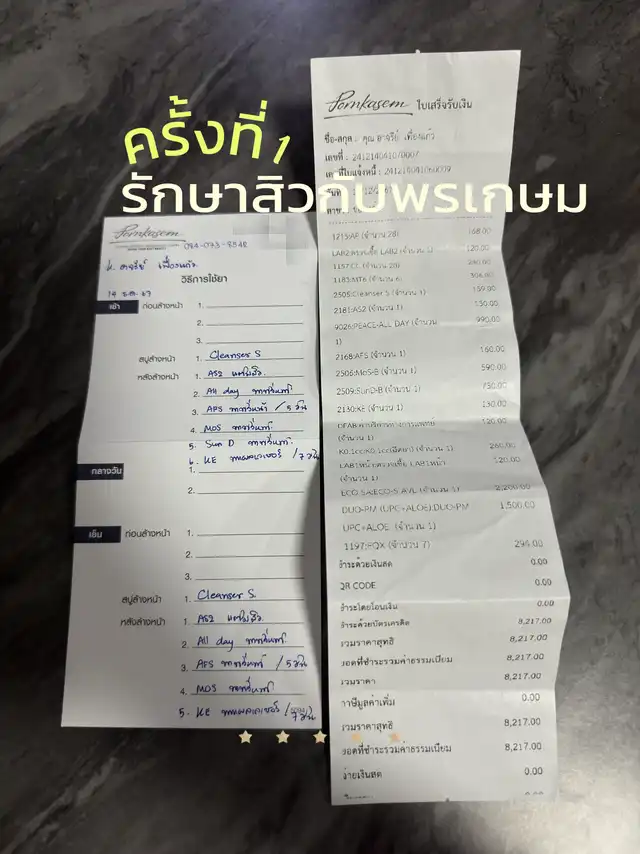 ครั้งที่ 1
รักษาสิวกับพรเกษม
Pornkasem
094-073-8548
วิธีการใช้ยา
19 ธ.ค. 67
เช้า ก่อนล้างหน้า 1.
2.
3.
สบู่ล้างหน้า 1. Cleanser S
หลังล้างหน้า 1. AS2 แต้มสิว
2. All day ทาทั่วหน้า
3. AFS ทาทั่วหน้า / 5 วัน
4. MOS ทาทั่วหน้า
5. Sun D ทาทั่วหน้า
6. KE ทาแผลเลเซอร์ / 7 วัน
กลางวัน 1.
2.
เย็น ก่อนล้างหน้า 1.
2.
3.
สบู่ล้างหน้า 1. Cleanser S
หลังล้างหน้า 1. AS2 แต้มสิว
2. All day ทาทั่วหน้า
3. AFS ทาทั่วหน้า / 5 วัน
4. MOS ทาทั่วหน้า
5. KE ทาแผลเลเซอร์ / 7 วัน
Pornkasem ใบเสร็จรับเงิน
ชื่อ-สกุล : คุณ อาจรีย์ เฟื่องแก้ว
เลขที่ : 241214041070007
241214041060009
1215:AP (จำนวน 28) 168.00
120.00
1157:CL (จำนวน 28)
1185:MT6 (จำนวน 6)
2505:Cleanser S (จำนวน 1) 159.00
2181:AS2 (จำนวน 1) 150.00
9026:PEACE-ALL DAY (จำนวน 990.00
1)
2168:AFS (จำนวน 1) 160.00
2506:MoS-B (จำนวน 1) 590.00
2509:SunD-B (จำนวน 1) 750.00
2130:KE (จำนวน 1) 130.00
120.00
(จำนวน 1)
260.00
120.00
(จำนวน 1)
2,200.00
DUO-PM (UPC+ALOE):DUO-PM 1,500.00
UPC+ALOE (จำนวน 1)
1197:PQX (จำนวน 7) 294.00
ชำระด้วยเงินสด 0.00
QR CODE 0.00
ชำระโดยโอนเงิน 0.00
ชำระด้วยบัตรเครดิต 8,217.00
รวมราคาสุทธิ 8,217.00
ยอดที่ชำระรวมค่าธรรมเนียม 8,217.00
รวมราคา 8,217.00
ภาษีมูลค่าเพิ่ม 0.00
รวมราคาสุทธิ 8,217.00
ยอดที่ชำระรวมค่าธรรมเนียม 8,217.00
จ่ายเงินสด 0.00